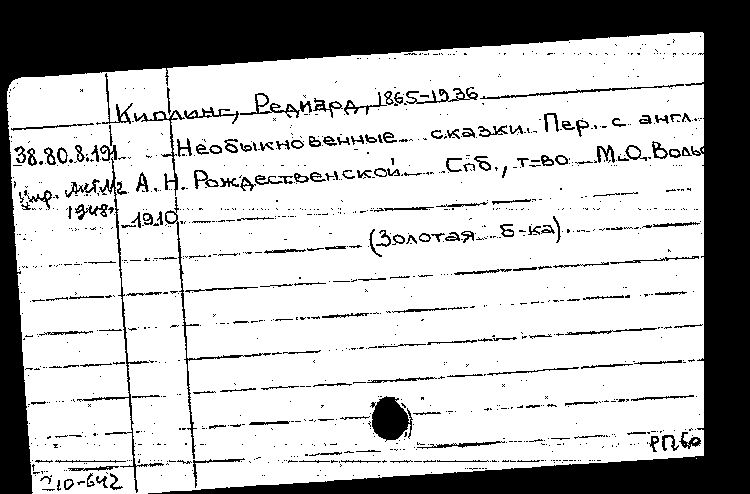 Киплинг, Редиард, 1865-1936.
38.80.8.191 Необыкновенные сказки. Пер. с англ.
А. Н. Рождественской. Спб., т-во М.О.Воль
1948г
1910
(Золотая б-ка).
210-642